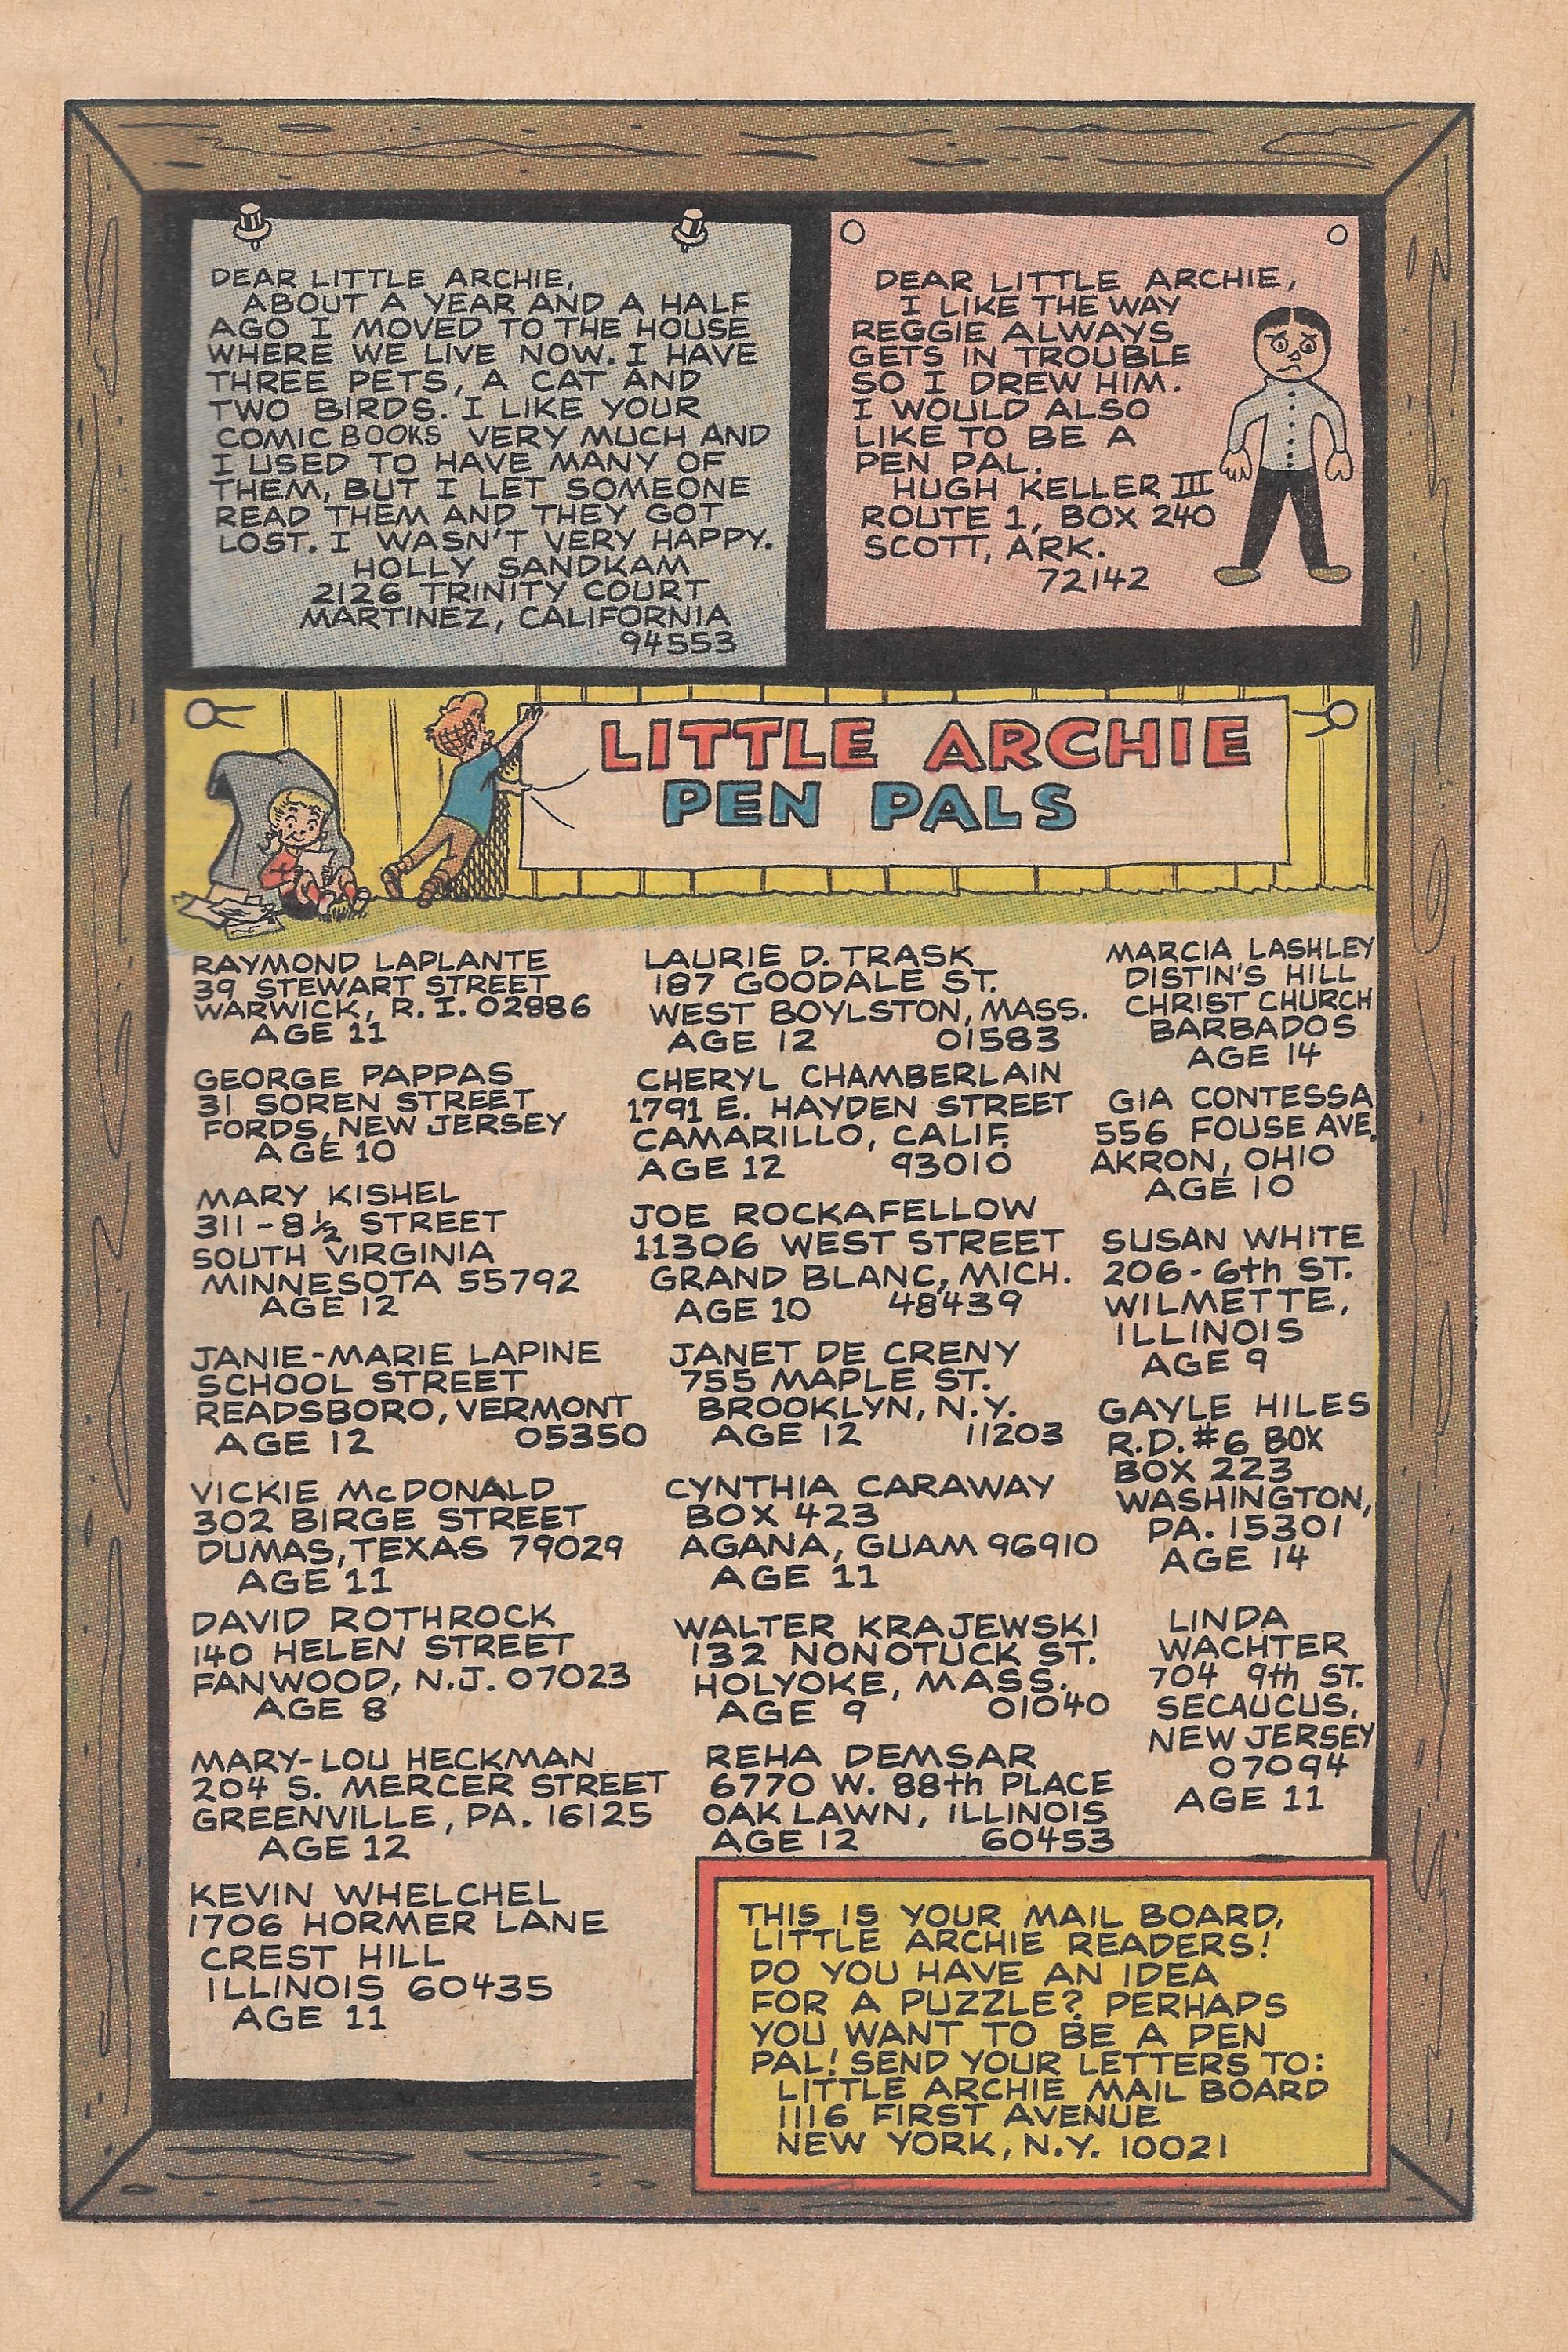 DEAR LITTLE ARCHIE,
ABOUT A YEAR AND A HALF
AGO I MOVED TO THE HOUSE
WHERE WE LIVE NOW. I HAVE
THREE PETS, A CAT AND
TWO BIRDS. I LIKE YOUR
COMIC BOOKS VERY MUCH AND
I USED TO HAVE MANY OF
THEM, BUT I LET SOMEONE
READ THEM AND THEY GOT
LOST. I WASN'T VERY HAPPY.
HOLLY SANDKAM
2126 TRINITY COURT
MARTINEZ, CALIFORNIA
94553
DEAR LITTLE ARCHIE,
I LIKE THE WAY
REGGIE ALWAYS
GETS IN TROUBLE
SO I DREW HIM.
I WOULD ALSO
LIKE TO BE A
PEN PAL.
HUGH KELLER III
ROUTE 1, BOX 240
SCOTT, ARK.
72142
LITTLE ARCHIE
PEN PALS
RAYMOND LAPLANTE
39 STEWART STREET
WARWICK, R.I. 02886
AGE 11
GEORGE PAPPAS
31 SOREN STREET
FORDS, NEW JERSEY
AGE 10
MARY KISHEL
311-8½ STREET
SOUTH VIRGINIA
MINNESOTA 55792
AGE 12
JANIE-MARIE LAPINE
SCHOOL STREET
READSBORO, VERMONT
AGE 12 05350
VICKIE McDONALD
302 BIRGE STREET
DUMAS, TEXAS 79029
AGE 11
DAVID ROTHROCK
140 HELEN STREET
FANWOOD, N.J. 07023
AGE 8
MARY-LOU HECKMAN
204 S. MERCER STREET
GREENVILLE, PA. 16125
AGE 12
KEVIN WHELCHEL
1706 HORMER LANE
CREST HILL
ILLINOIS 60435
AGE 11
LAURIE D. TRASK
187 GOODALE ST.
WEST BOYLSTON, MASS.
AGE 12 01583
CHERYL CHAMBERLAIN
1791 E. HAYDEN STREET
CAMARILLO, CALIF.
AGE 12 93010
JOE ROCKAFELLOW
11306 WEST STREET
GRAND BLANC, MICH.
AGE 10 48439
JANET DE CRENY
755 MAPLE ST.
BROOKLYN, N.Y.
AGE 12 11203
CYNTHIA CARAWAY
BOX 423
AGANA, GUAM 96910
AGE 11
WALTER KRAJEWSKI
132 NONOTUCK ST.
HOLYOKE, MASS.
AGE 9 01040
REHA DEMSAR
6770 W. 88th PLACE
OAK LAWN, ILLINOIS
AGE 12 60453
MARCIA LASHLEY
DISTIN'S HILL
CHRIST CHURCH
BARBADOS
AGE 14
GIA CONTESSA
556 FOUSE AVE.
AKRON, OHIO
AGE 10
SUSAN WHITE
206-6th ST.
WILMETTE,
ILLINOIS
AGE 9
GAYLE HILES
R.D. #6 BOX
BOX 223
WASHINGTON,
PA. 15301
AGE 14
LINDA
WACHTER
704 9th ST.
SECAUCUS,
NEW JERSEY
07094
AGE 11
THIS IS YOUR MAIL BOARD,
LITTLE ARCHIE READERS!
DO YOU HAVE AN IDEA
FOR A PUZZLE? PERHAPS
YOU WANT TO BE A PEN
PAL! SEND YOUR LETTERS TO:
LITTLE ARCHIE MAIL BOARD
1116 FIRST AVENUE
NEW YORK, N.Y. 10021